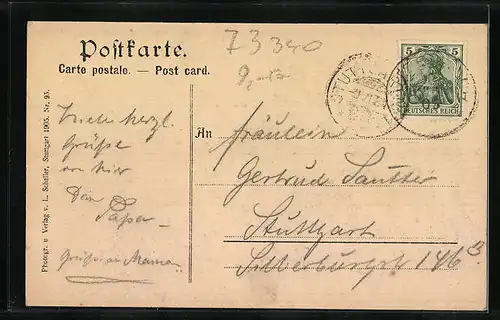 Postkarte.
Carte postale. — Post card.
73340
9,-
5 5
DEUTSCHES REICH
STUTTG
Photogr. u Verlag v. L. Schaller, Stuttgart 1905. Nr. 95.
Viele herzl.
Grüsse
von hier
Dein
Papa
Grüsse an Mama
An
Fräulein
Gertrud Sautter
Stuttgart
Silberburgstr 146 B.